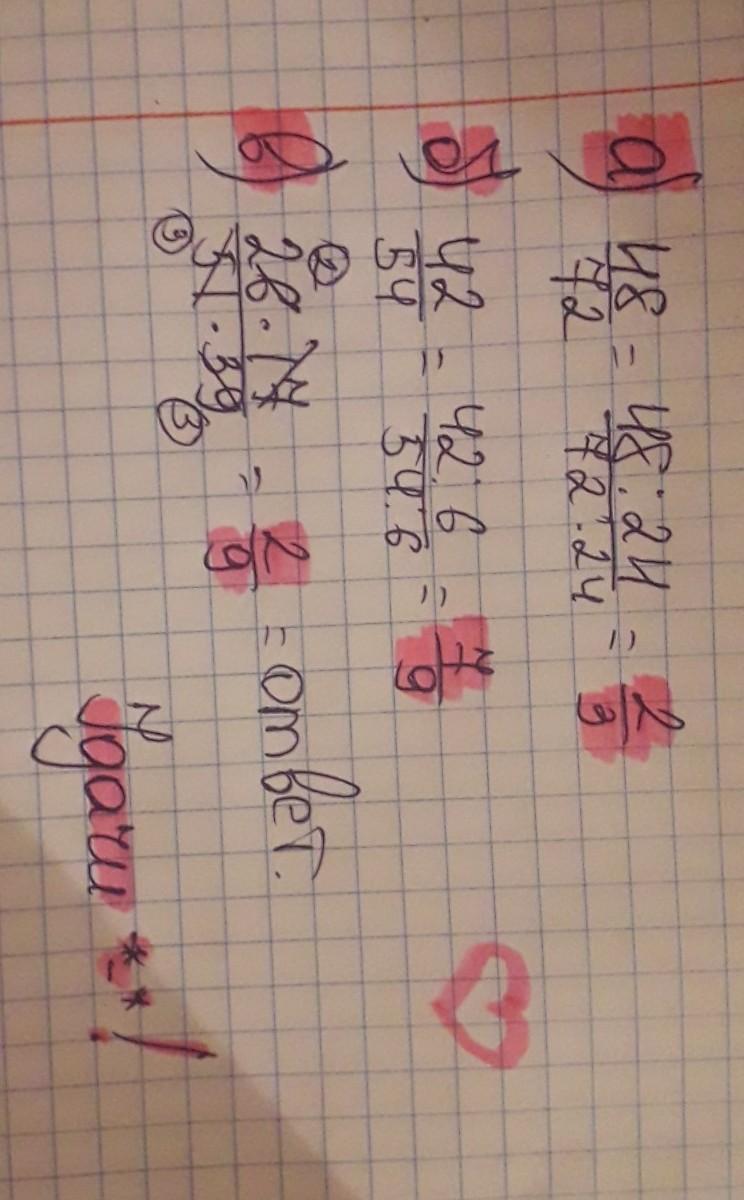 а) 48/72 = 48:24/72:24 = 2/3
б) 42/54 = 42:6/54:6 = 7/9
в) 26·17/51·39 = 2/9 = ответ.
② ③ ③
Удачи *_*!